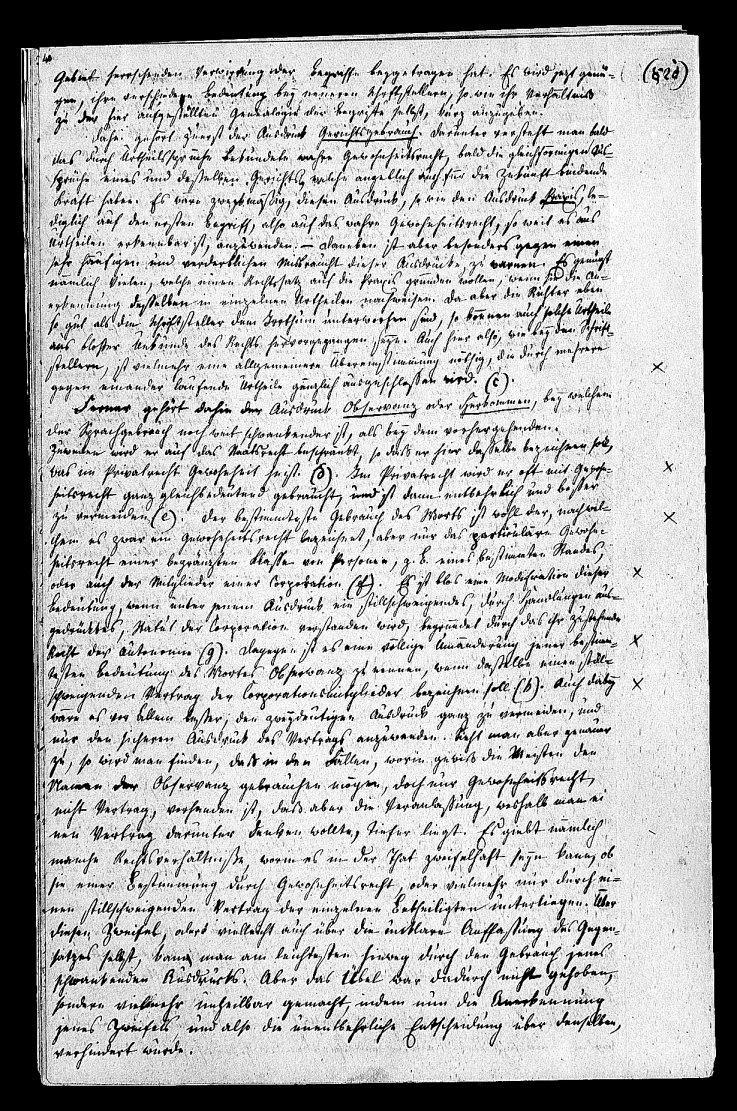 (528)
Gebiet herrschenden Verwirrung der Begriffe beygetragen hat. Es wird jetzt genü-
gen, ihre verschiedene Bedeutung bey neueren Schriftstellern, so wie ihr Verhältniß
zu der hier aufgestellten Genealogie der Begriffe selbst, kurz anzugeben.
Dahin gehört zuerst der Ausdruck Gerichtsgebrauch. Darunter versteht man bald
das durch Urtheilssprüche bekundete wahre Gewohnheitsrecht, bald die gleichförmigen Aus-
sprüche eines und desselben Gerichts, welche angeblich auch für die Zukunft bindende
Kraft haben. Es wäre zweckmäßig, diesen Ausdruck, so wie den Ausdruck Praxis, le-
diglich auf den ersten Begriff, also auf das wahre Gewohnheitsrecht, so weit es aus
Urtheilen erkennbar ist, anzuwenden. – Daneben ist aber besonders gegen einen
sehr häufigen und verderblichen Misbrauch dieser Ausdrücke, zu warnen. Es genügt
nämlich Vielen, welche einen Rechtssatz auf die Praxis gründen wollen, wenn sie die An-
erkennung desselben in einzelnen Urtheilen nachweisen. Da aber die Richter eben
so gut als die Schriftsteller dem Irrthum unterworfen sind, so können auch solche Urtheile
aus bloßer Unkunde des Rechts hervorgegangen seyn. Auch hier also, wie bey den Schrift-
stellern, ist vielmehr eine allgemeinere Übereinstimmung nöthig, die durch mehrere
gegen einander laufende Urtheile gänzlich ausgeschlossen wird. (c).
Ferner gehört dahin der Ausdruck Observanz oder Herkommen, bey welchem
der Sprachgebrauch noch weit schwankender ist, als bey dem vorhergehenden.
Zuweilen wird er auf das Staatsrecht beschränkt, so daß er hier dasselbe bezeichnen soll,
was im Privatrecht Gewohnheit heißt. (d). Im Privatrecht wird er oft mit Gewohn-
heitsrecht ganz gleichbedeutend gebraucht, und ist dann entbehrlich und besser
zu vermeiden (e). Der bestimmteste Gebrauch des Worts ist wohl der, nach wel-
chem es zwar ein Gewohnheitsrecht bezeichnet, aber nur das particuläre Gewohn-
heitsrecht einer begränzten Klasse von Personen, z. B. eines bestimmten Standes,
oder auch der Mitglieder einer Corporation (f). Es ist blos eine Modification dieser
Bedeutung, wenn unter jenem Ausdruck ein stillschweigendes, durch Handlungen aus-
gedrücktes, Statut der Corporation verstanden wird, begründet durch das ihr zustehende
Recht der Autonomie (g). Dagegen ist es eine völlige Umänderung jener bestimm-
testen Bedeutung des Wortes Observanz zu nennen, wenn dasselbe einen still-
schweigenden Vertrag der Corporationsmitglieder bezeichnen soll (h). Auch dabey
wäre es vor Allem besser, den zweydeutigen Ausdruck ganz zu vermeiden, und
nur den sicheren Ausdruck des Vertrags anzuwenden. Sieht man aber genauer
zu, so wird man finden, daß in den Fällen, worin gewiß die Meisten den
Namen der Observanz gebrauchen mögen, doch nur Gewohnheitsrecht,
nicht Vertrag, vorhanden ist, daß aber die Veranlassung, weshalb man ei
nen Vertrag darunter denken wollte, tiefer liegt. Es giebt nämlich
manche Rechtsverhältnisse, worin es in der That zweifelhaft seyn kann, ob
sie einer Bestimmung durch Gewohnheitsrecht, oder vielmehr nur durch ei-
nen stillschweigenden Vertrag der einzelnen Betheiligten unterliegen. Über
diesen Zweifel, oder vielleicht auch über die unklare Auffassung des Gegen-
satzes selbst, kam man am leichtesten hinweg durch den Gebrauch jenes
schwankenden Ausdrucks. Aber das Übel war dadurch nicht gehoben,
sondern vielmehr unheilbar gemacht, indem nun die Anerkennung
jenes Zweifels und also die unentbehrliche Entscheidung über denselben,
verhindert wurde.